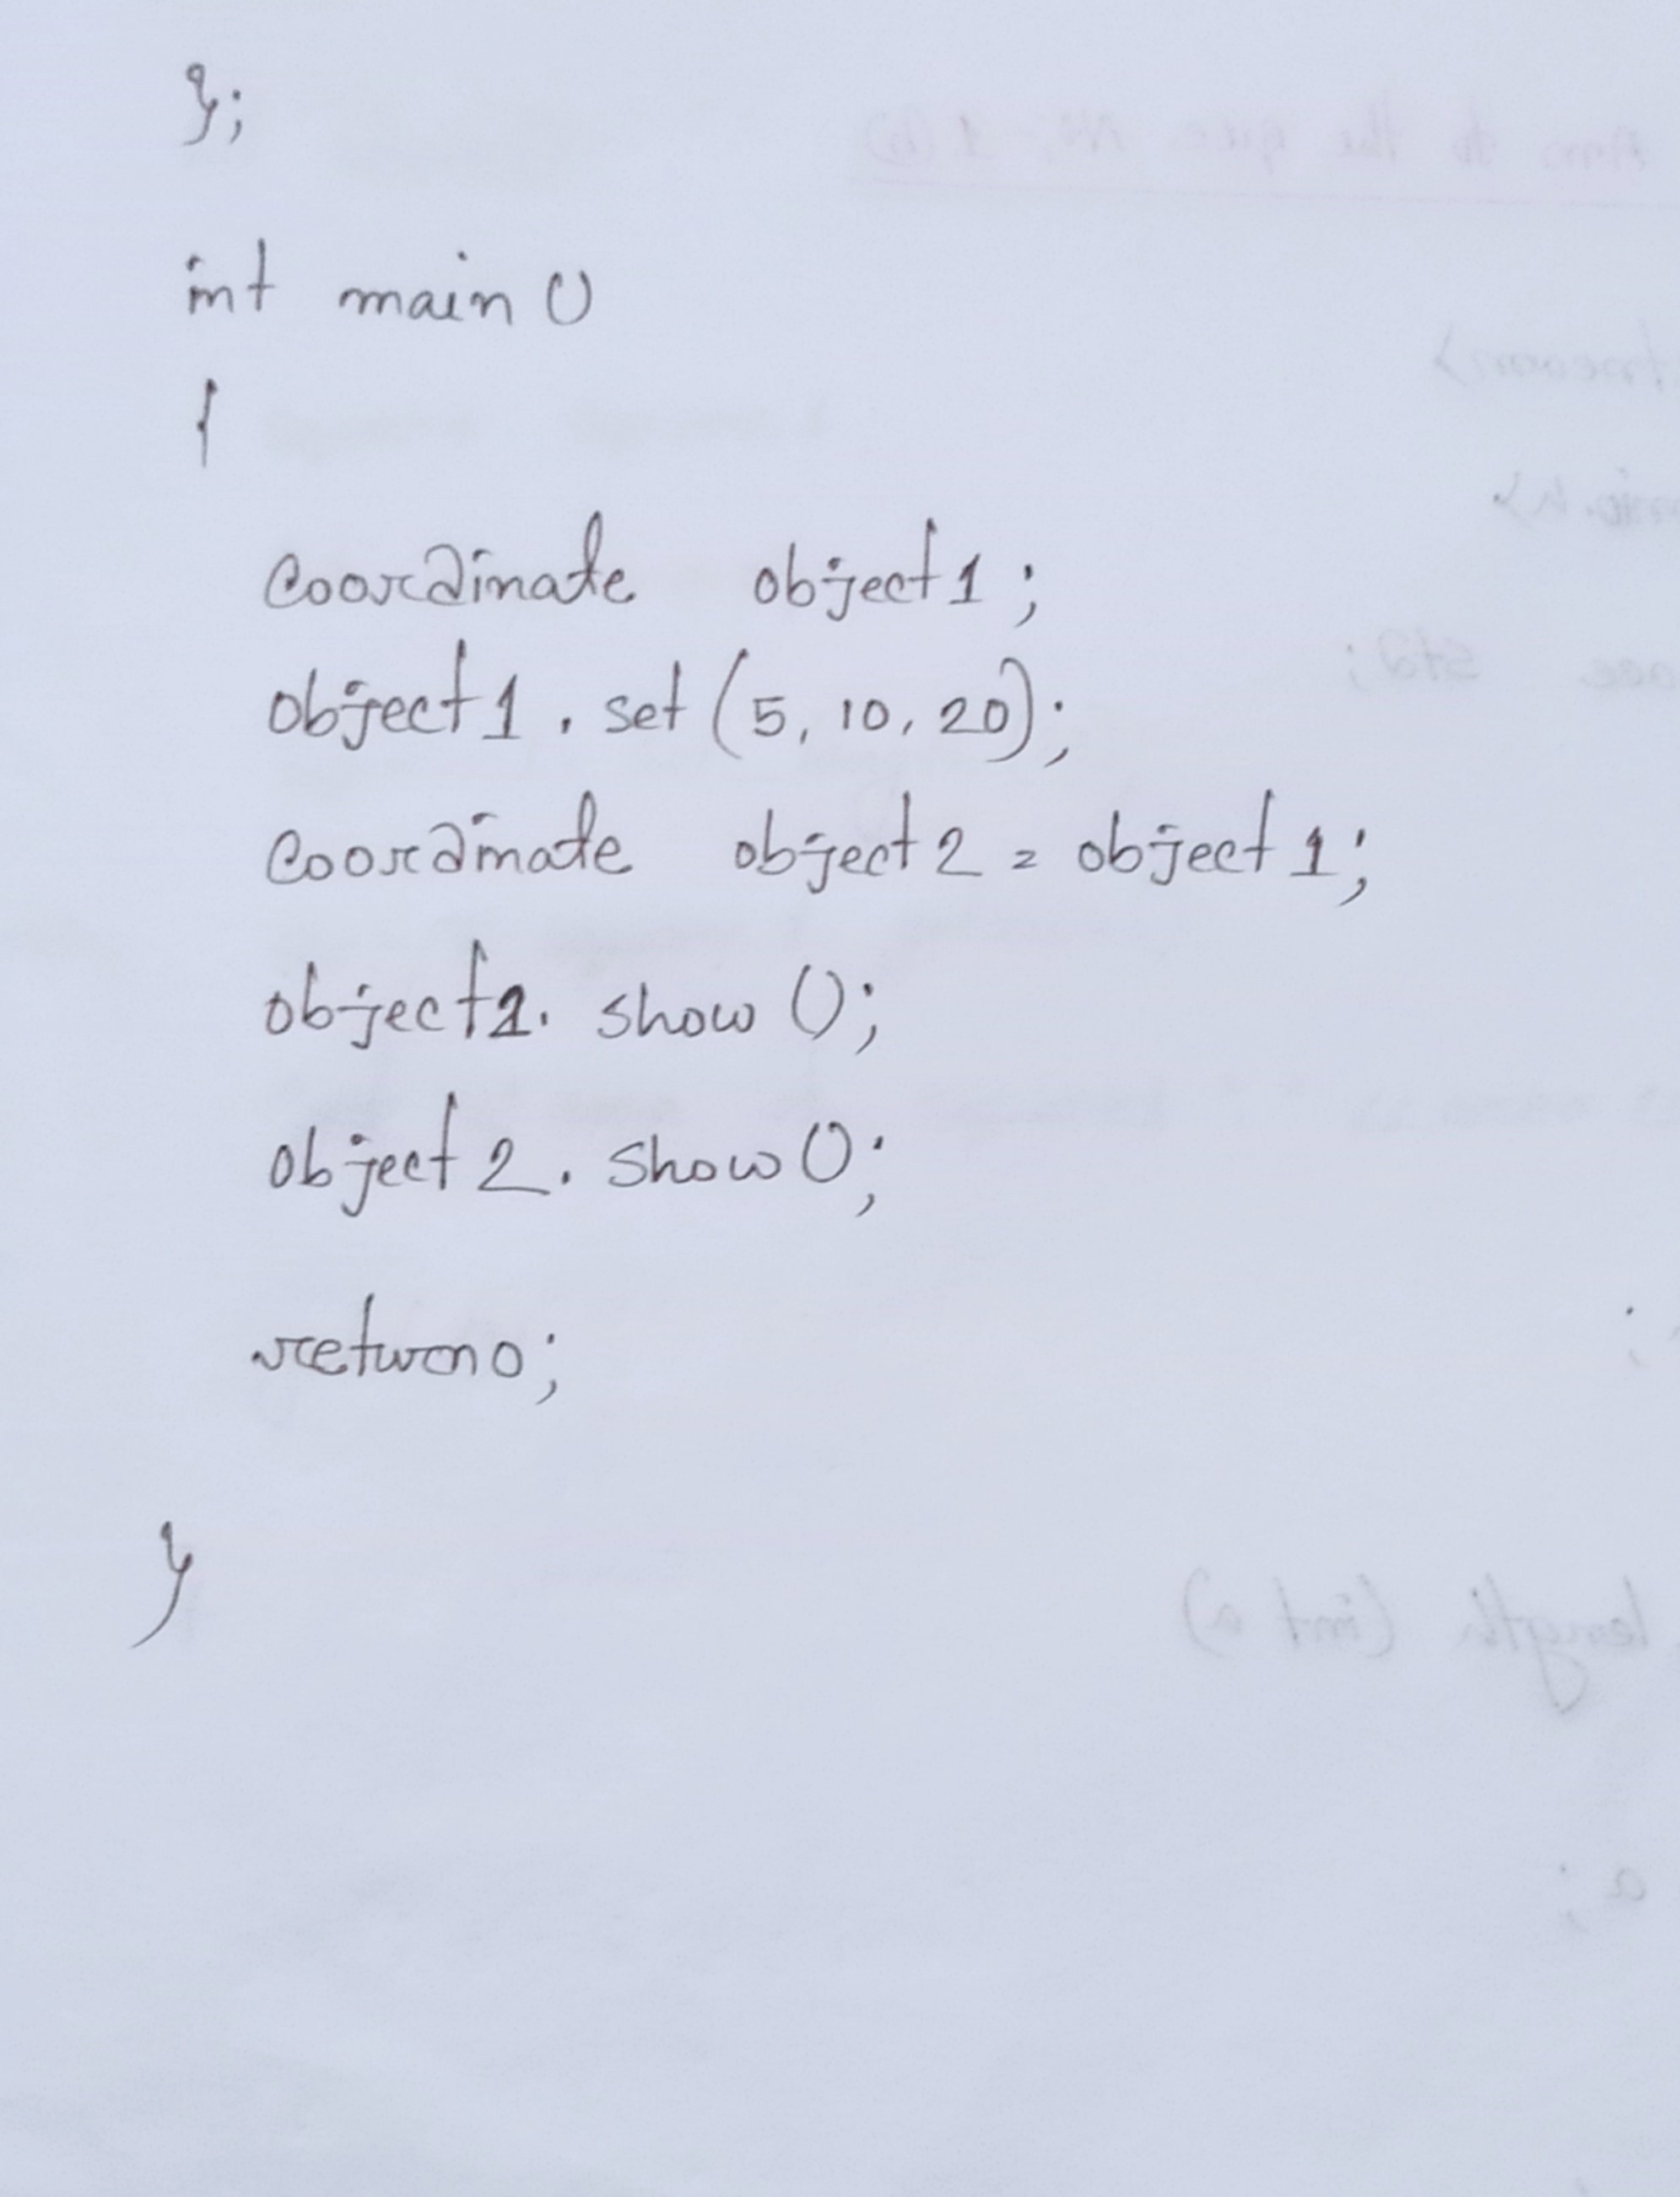 };
int main ()
{
Coordinate object1;
object1. set (5, 10, 20);
Coordinate object2 = object1;
object1. show ();
object2. show ();
return 0;
}